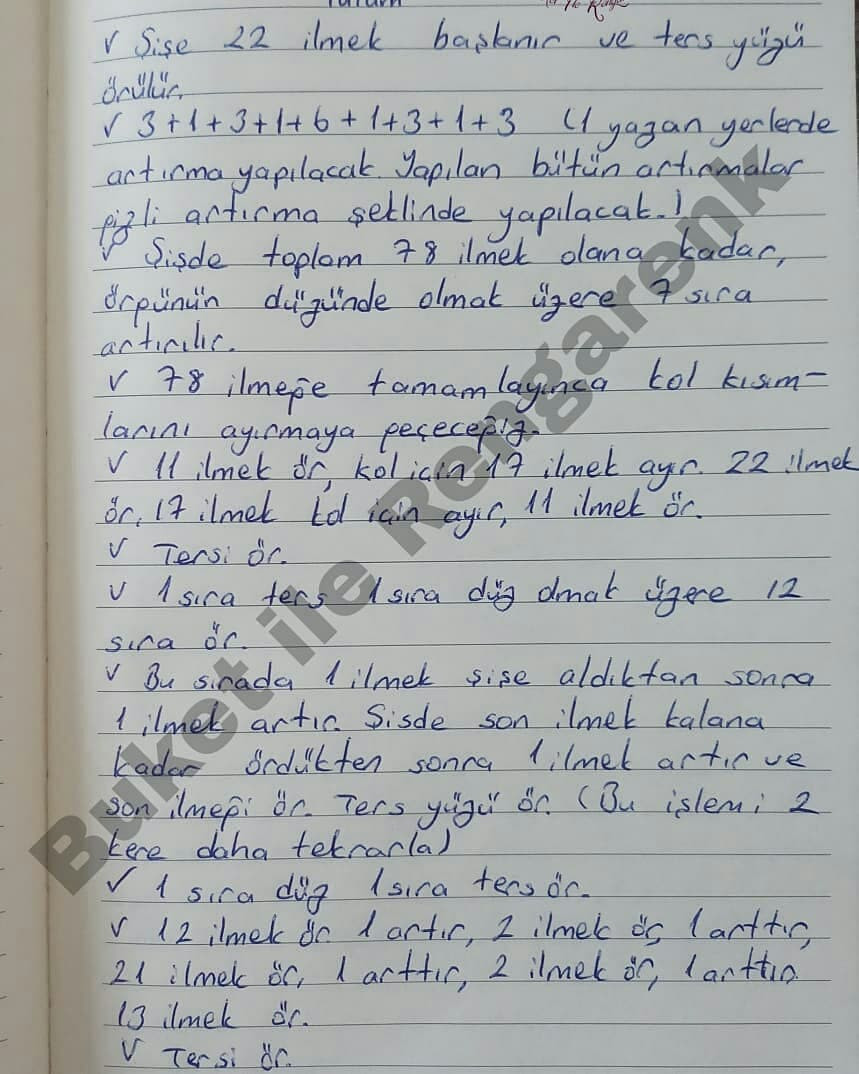 √ Şişe 22 ilmek başlanır ve ters yüzü
örülür.
√ 3+1+3+1+6+1+3+1+3 (1 yazan yerlerde
artırma yapılacak. Yapılan bütün artırmalar
gizli artırma şeklinde yapılacak.)
√ Şişde toplam 78 ilmek olana kadar,
örgünün düzünde olmak üzere 7 sıra
artırılır.
√ 78 ilmeğe tamamlayınca kol kısım-
larını ayırmaya geçeceğiz.
√ 11 ilmek ör, kol için 17 ilmek ayır. 22 ilmek
ör, 17 ilmek kol için ayır, 11 ilmek ör.
√ Tersi ör.
√ 1 sıra ters 1 sıra düz olmak üzere 12
sıra ör.
√ Bu sırada 1 ilmek şişe aldıktan sonra
1 ilmek artır. Şisde son ilmek kalana
kadar ördükten sonra 1 ilmek artır ve
son ilmeği ör. Ters yüzü ör. (Bu işlemi 2
kere daha tekrarla)
√ 1 sıra düz 1 sıra ters ör.
√ 12 ilmek ör 1 artır, 2 ilmek ör, 1 arttır,
21 ilmek ör, 1 arttır, 2 ilmek ör, 1 arttır.
13 ilmek ör.
√ Tersi ör.
Buket ile Rengarenk